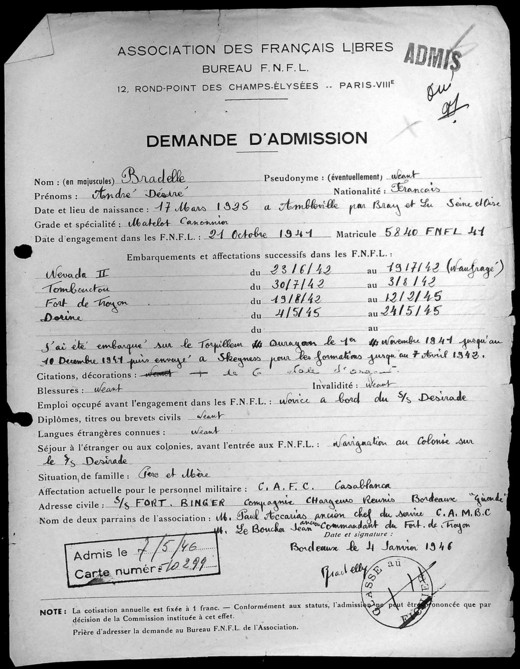 ASSOCIATION DES FRANÇAIS LIBRES
BUREAU F.N.F.L.
12, ROND-POINT DES CHAMPS-ÉLYSÉES -- PARIS-VIIIE
ADMIS
DEMANDE D'ADMISSION
Nom : (en majuscules) Bradelle Pseudonyme : (éventuellement) néant
Prénoms : André Désiré Nationalité : Francais
Date et lieu de naissance : 17 Mars 1925 a Ambleville par Bray et Lu Seine et Oise
Grade et spécialité : Matelot Canonnier
Date d'engagement dans les F.N.F.L. : 21 Octobre 1941 Matricule 5840 FNFL 41
Embarquements et affectations successifs dans les F.N.F.L. :
Nevada II du 23/6/42 au 19/7/42 (Naufragé)
Tombouctou du 30/7/42 au 3/8/42
Fort de Troyon du 19/8/42 au 12/2/45
Dorine du 4/5/45 au 24/5/45
du au
J'ai été embarqué sur le Torpilleur Ouragan le 1er Novembre 1941 jusqu'au
10 Decembre 1941 puis envoyé a Skegness pour les formations jusqu'au 7 Avril 1942.
Citations, décorations :
Blessures : néant Invalidité : néant
Emploi occupé avant l'engagement dans les F.N.F.L. : novice a bord du S/S Desirade
Diplômes, titres ou brevets civils néant
Langues étrangères connues : néant
Séjour à l'étranger ou aux colonies, avant l'entrée aux F.N.F.L. : Navignation au Colonie sur
le S/S Desirade
Situation de famille : Père et Mère
Affectation actuelle pour le personnel militaire : C.A.F.C. Casablanca
Adresse civile : S/S FORT. BINGER Compagnie Chargeurs Reunis Bordeaux "Gironde"
Nom de deux parrains de l'association : M. Paul Accarias ancien chef du service C.A.M.B.C
M. Le Boucha Jean ancien Commandant du Fort de Troyon
Date et signature :
Bordeaux le 4 Janvier 1946
Bradelle
Admis le 7/5/46
Carte numéro 10299
CLASSE au
FICHIER
NOTE : La cotisation annuelle est fixée à 1 franc. — Conformément aux statuts, l'admission ne peut être prononcée que par
décision de la Commission instituée à cet effet.
Prière d'adresser la demande au Bureau F.N.F.L. de l'Association.